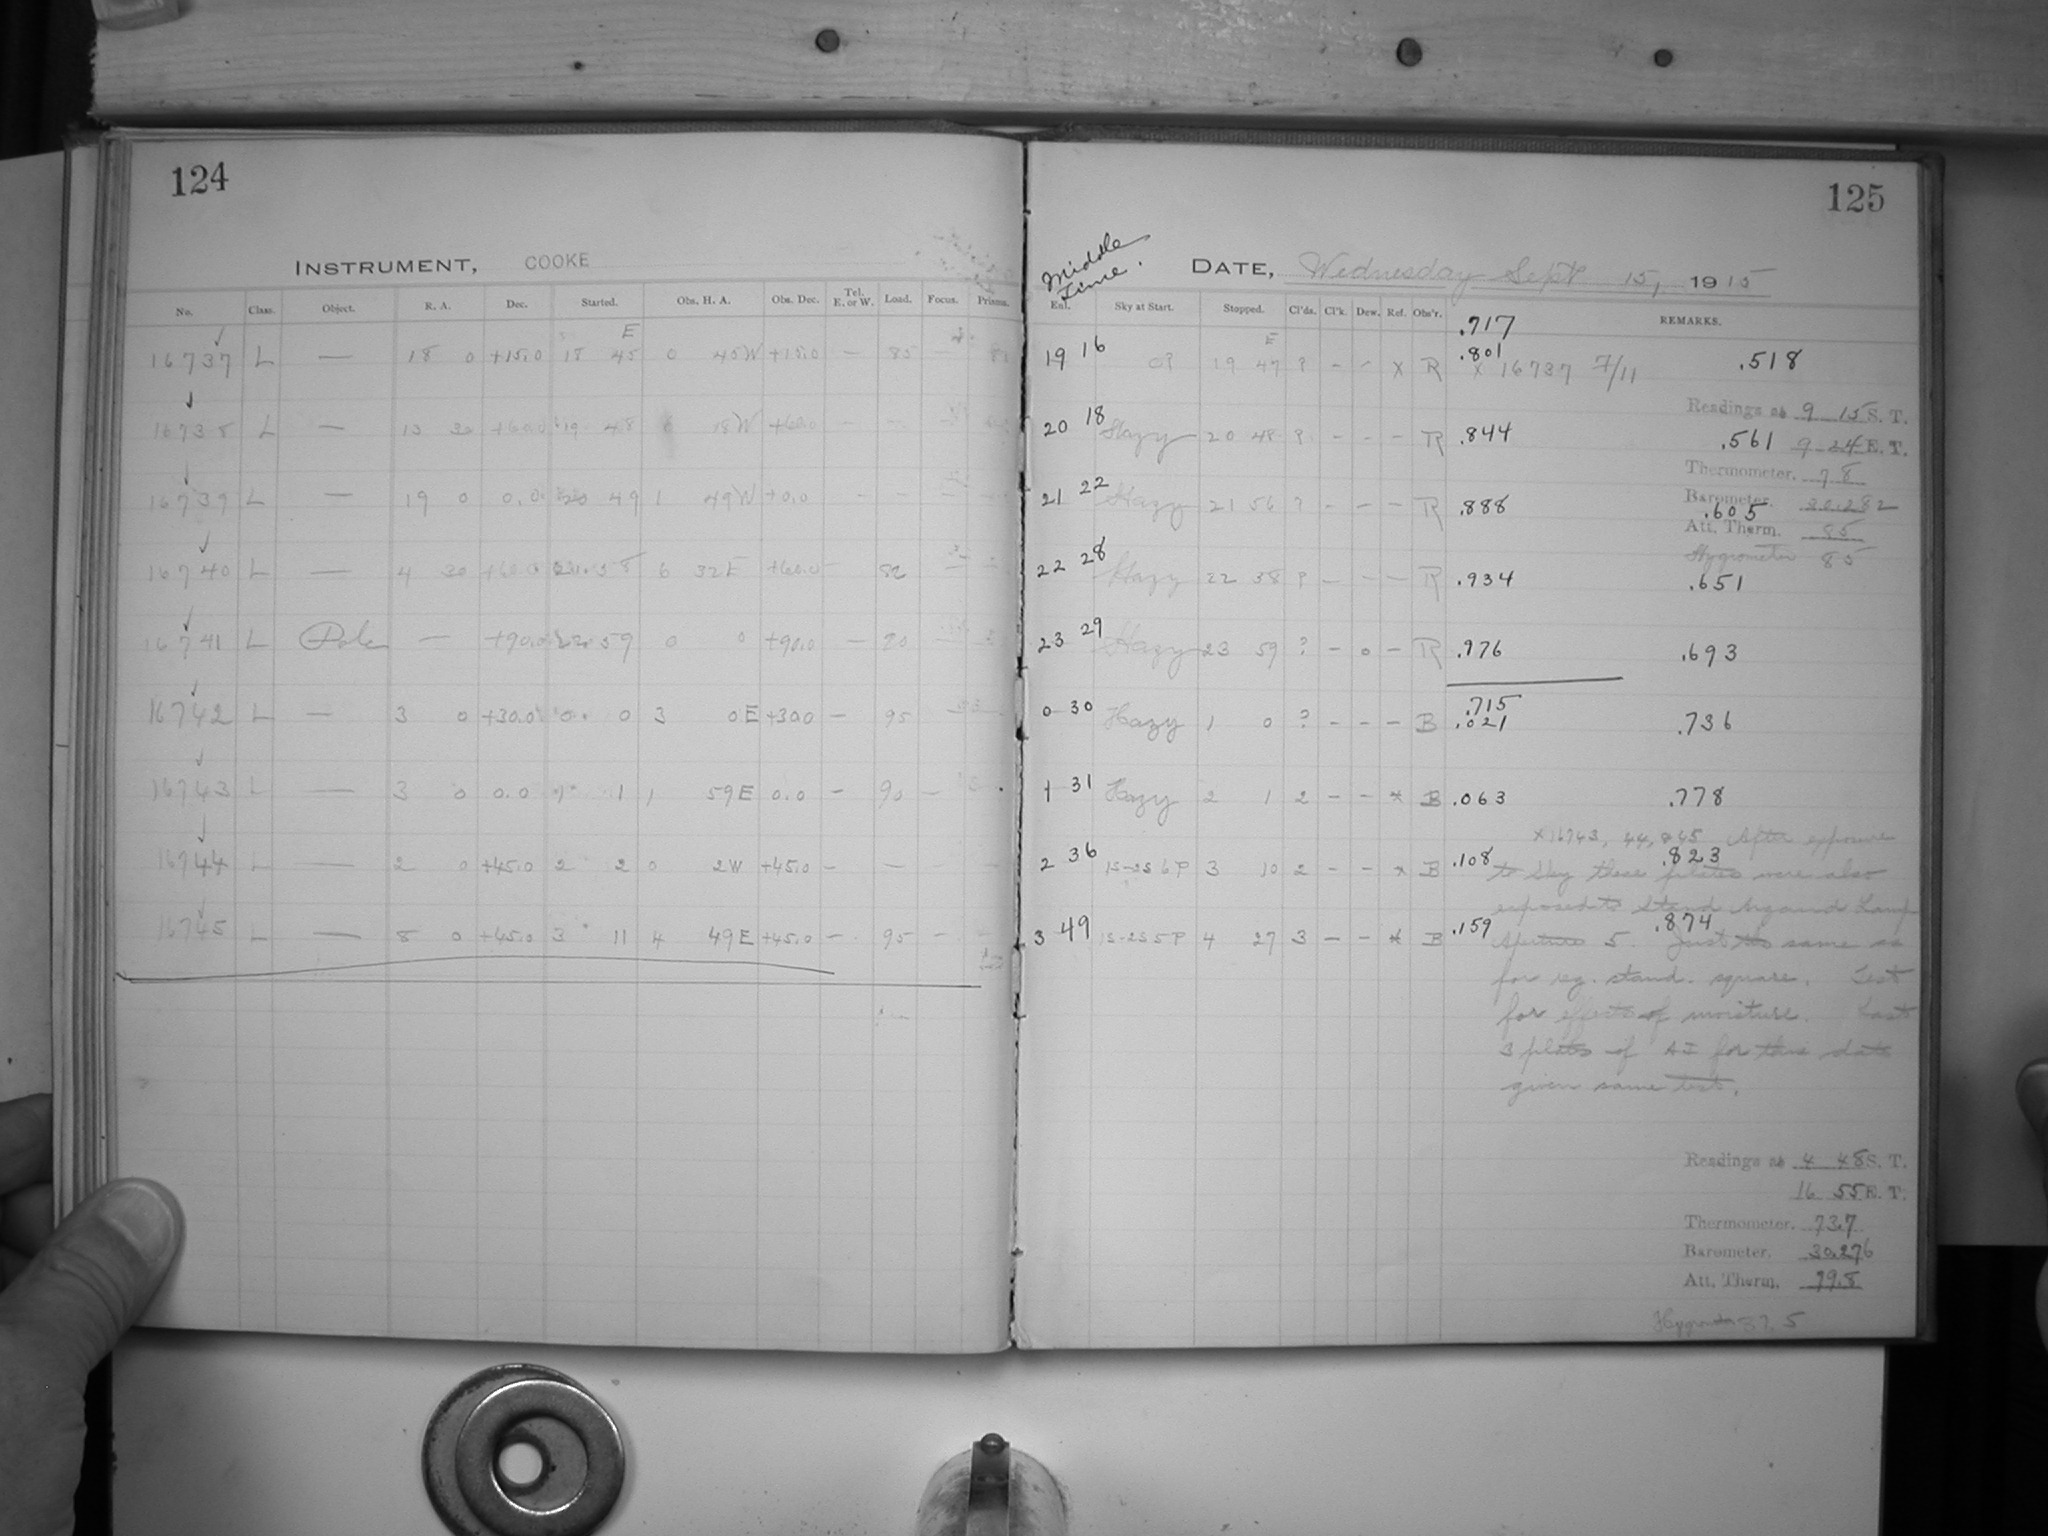 124
INSTRUMENT, COOKE
No. Class. Object. R. A. Dec. Started. Obs. H. A. Obs. Dec. Tel. E. or W. Load. Focus. Prisms.
E
16737 L — 18 0 +15.0 18 45 0 45W +15.0 — 85 —
16738 L — 13 30 +60.0 19 48 6 18W +60.0 — — —
16739 L — 19 0 0.0 20 49 1 49W +0.0 — — —
16740 L — 4 30 +60.0 58 6 32E +60.0 — 82
16741 L Pole — +90.0 59 0 0 +90.0 — 80
16742 L — 3 0 +30.0 0 0 3 0E +30.0 — 95
16743 L — 3 0 0.0 1 1 1 59E 0.0 — 90 —
16744 L — 2 0 +45.0 2 2 0 2W +45.0 — —
16745 L — 8 0 +45.0 3 11 4 49E +45.0 — 95 —
125
Middle Time.
DATE, Wednesday Sept 15, 1915
Enl. Sky at Start. Stopped. Cl'ds. Cl'k. Dew. Ref. Obs'r. REMARKS.
.717
E
19 16 19 47 ? - - x R .801 .518
x 16737 7/11
Readings at 9 15 S. T.
20 18 Hazy 20 48 ? - - - R .844 .561 9 24 E. T.
Thermometer. 78
Barometer. 30.282
21 22 Hazy 21 56 ? - - - R .888 .605
Att. Therm. 85
Hygrometer 85
22 28 Hazy 22 58 ? - - - R .934 .651
23 29 Hazy 23 59 ? - 0 - R .976 .693
.715
0 30 Hazy 1 0 ? - - - B .021 .736
1 31 Hazy 2 1 2 - - x B .063 .778
x 16743, 44, & 45 After exposure
2 36 1S-2S 6P 3 10 2 - - x B .108 .823
to sky these plates were also
exposed to Stand Argand Lamp
3 49 1S-2S 5P 4 27 3 - - x B .159 .874
Aperture 5. Just the same as
for reg. stand. square. Test
for effects of moisture. Last
3 plates of AI for this date
given same test.
Readings at 4 48 S. T.
16 55 E. T.
Thermometer. 73.7
Barometer. 30.276
Att. Therm. 79.8
Hygrometer 87.5